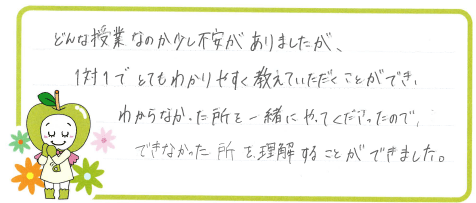 どんな授業なのか少し不安がありましたが、
1対1でとてもわかりやすく教えていただくことができ、
わからなかった所を一緒にやってくださったので、
できなかった所を理解することができました。